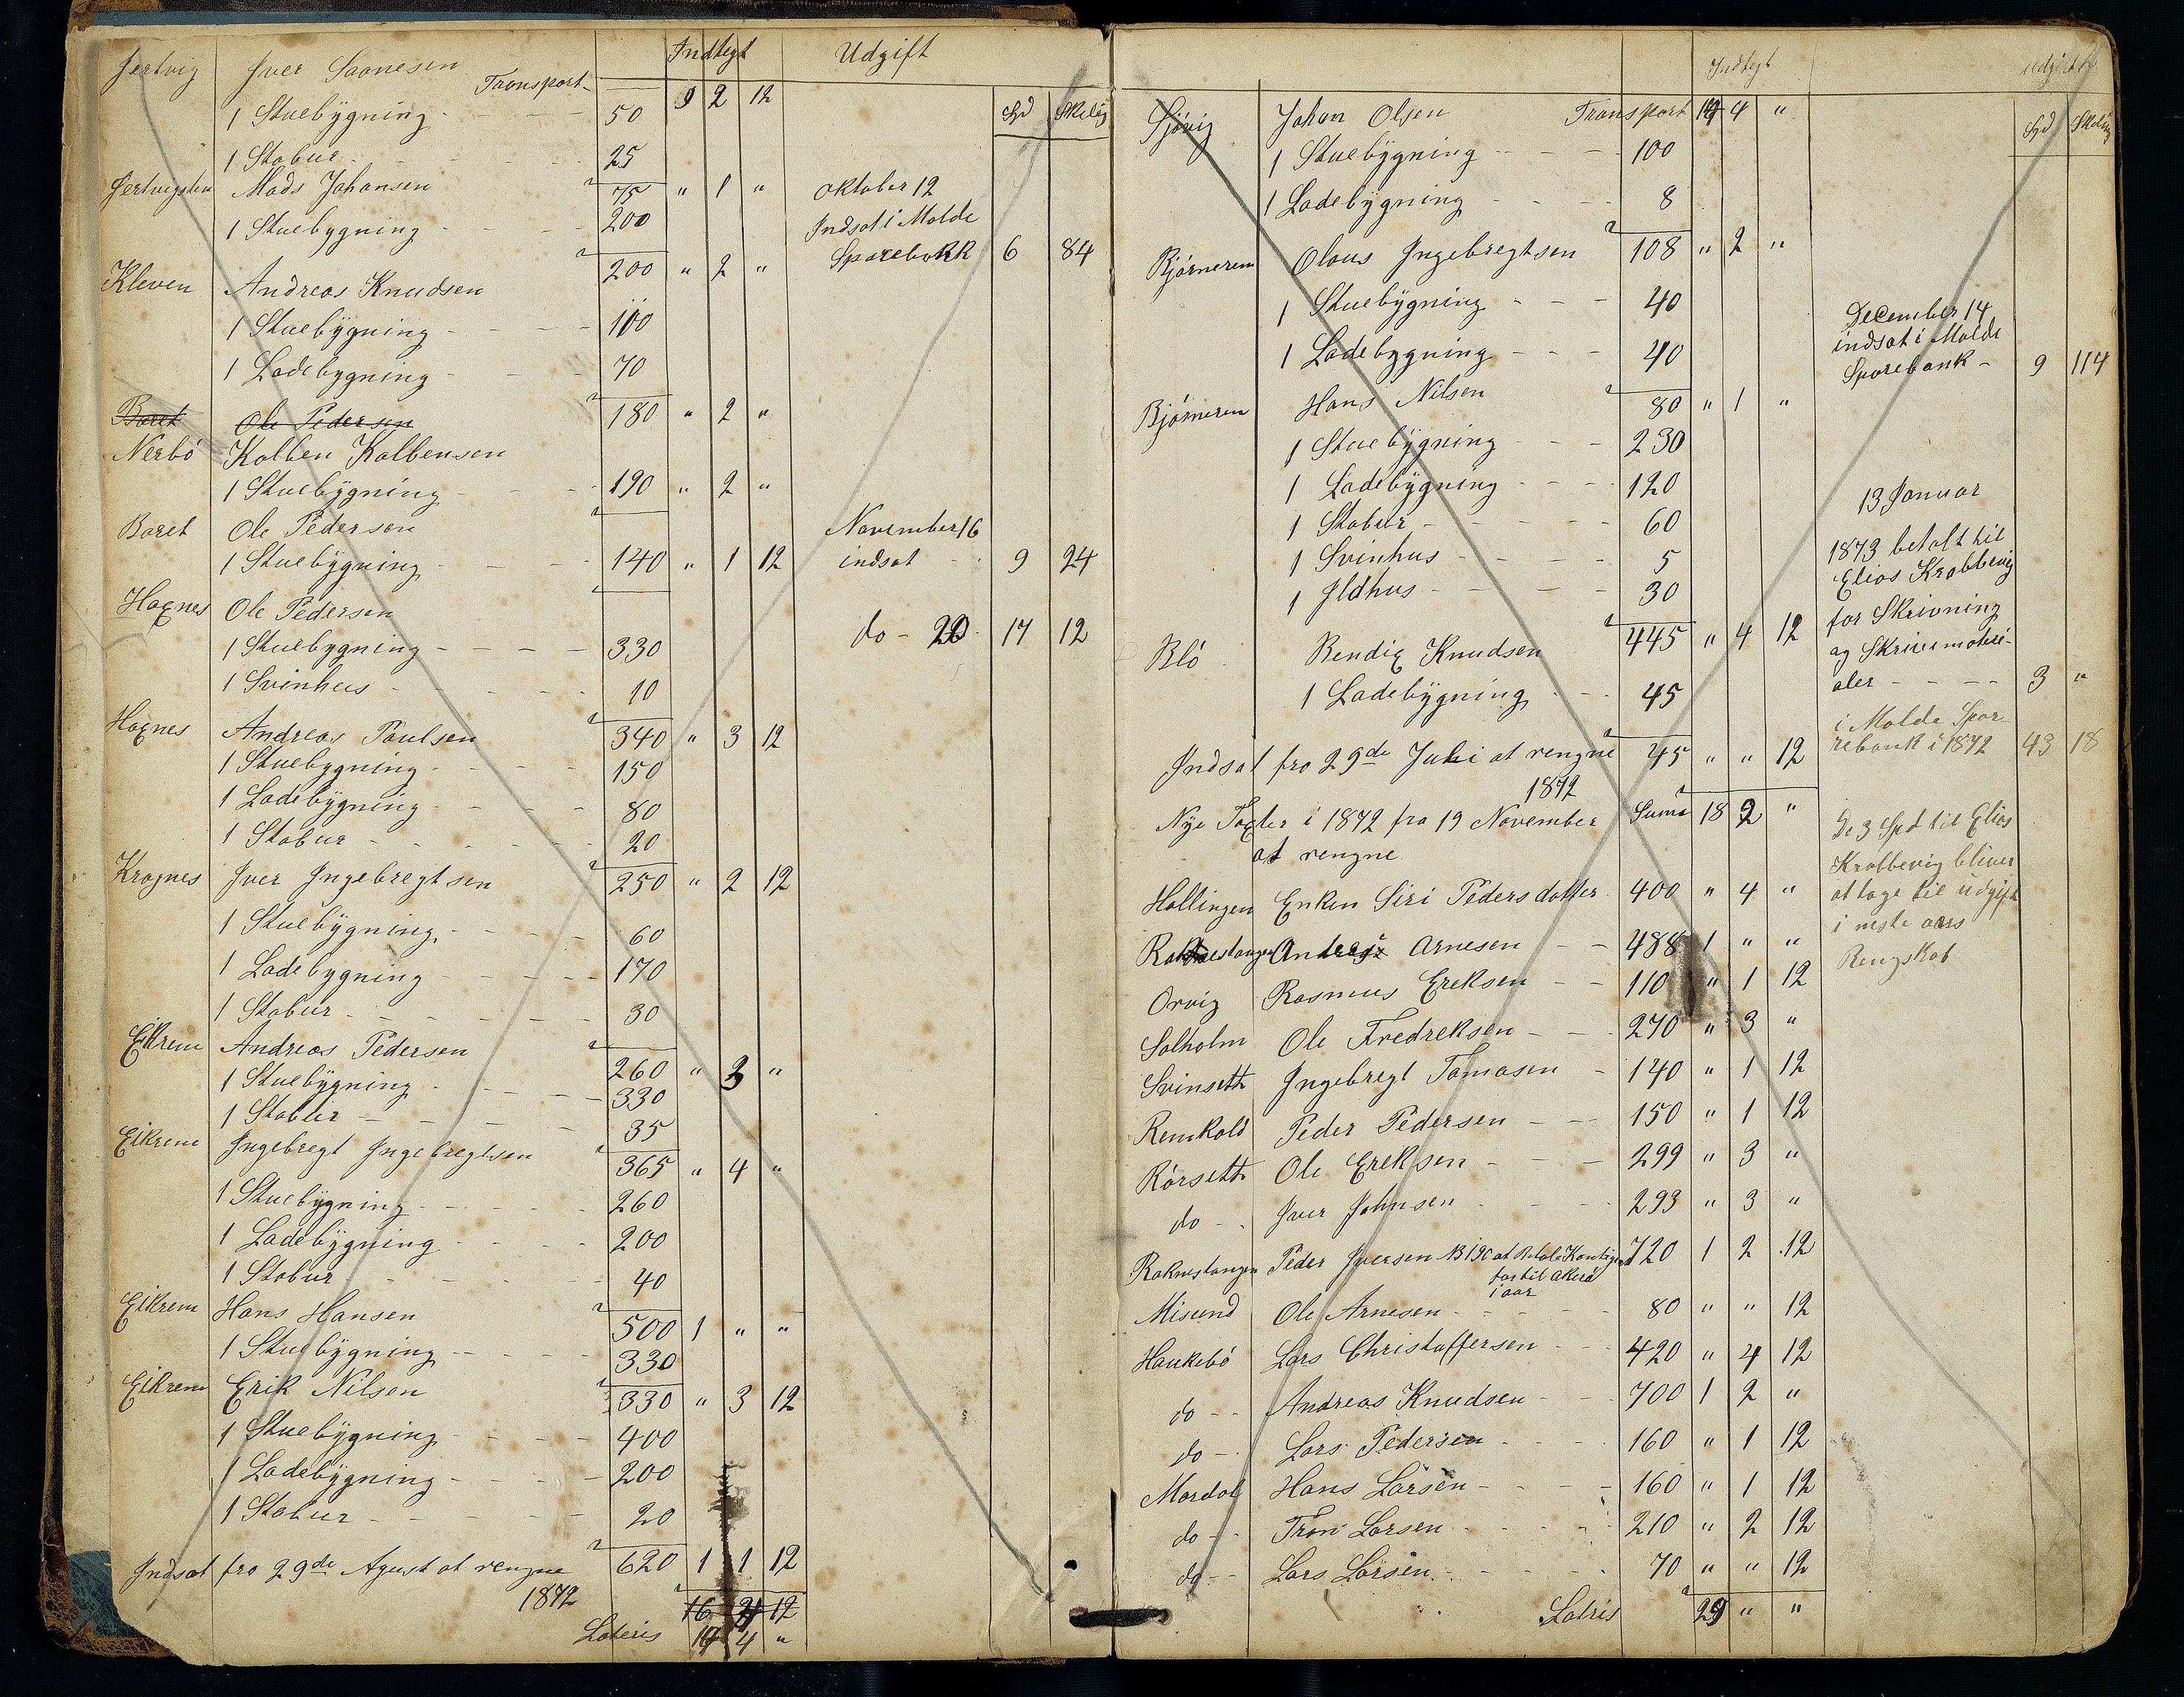 Indtegt Udgift
Jertvig Iver Saanesen
Transport 9 2 12
Spd Skilig
1 Stuebygning 50
1 Stabur 25
Jertvigslen Mads Johansen 75 " 1 " Oktober 12
1 Stuebygning 200 Indsat i Molde
Sparebank 6 84
Kleven Andreas Knudsen 200 " 2 "
1 Stuebygning 110
1 Ladebygning 70
Baret Ole Pedersen 180 " 2 "
Nerbö Kolben Kolbensen
1 Stuebygning 190 " 2 "
Baret Ole Pedersen November 16
1 Stuebygning 140 " 1 12 indsat 9 24
Hagnes Ole Pedersen
do - 20 17 12
1 Stuebygning 330
1 Svinhus 10
Hagnes Andreas Paulsen 340 " 3 12
1 Stuebygning 150
1 Ladebygning 80
1 Stabur 20
Kragnes Iver Ingebregtsen 250 " 2 12
1 Stuebygning 60
1 Ladebygning 170
1 Stabur 30
Eikrem Andreas Pedersen 260 " 3 "
1 Stuebygning 330
1 Stabur 35
Eikrem Ingebregt Ingebregtsen 365 " 4 "
1 Stuebygning 260
1 Ladebygning 200
1 Stabur 40
Eikrem Hans Hansen 500 1 " "
1 Stuebygning 330
Eikrem Erik Nilsen 330 " 3 12
1 Stuebygning 400
1 Ladebygning 200
1 Stabur 20
Indsat fra 29de Agust at rengne 620 1 1 12
1872 16 4 12
Lateris 14 4 "
Indtegt udgift
Spd Skilling
Gjövig Johan Olsen Transport 14 4 "
1 Stuebygning 100
1 Ladebygning 8
Björnerem Olaus Ingebregtsen 108 " 2 "
1 Stuebygning 40 December 14
indsat i Molde
1 Ladebygning 40 Sparebank - 9 114
Björnerem Hans Nilsen 80 " 1 "
1 Stuebygning 230
1 Ladebygning 120 13 Januar
1 Stabur 60
1 Svinhus 5 1873 betalt til
1 Ildhus 30 Elias Krabbevig
Blö Bendig Knudsen 445 " 4 12 for Skrivning
og Skrivemateri-
1 Ladebygning 45 aler 3 "
i Molde Spa-
Indsat fra 29de Juli at rengne 45 " " 12 rebank i 1872 43 18
1872
Nye Tagter i 1872 fra 19 November Suma 18 2 "
De 3 Spd til Elias
at rengne
Krabbevig bliver
Hollingen Enken Siri Pedersdatter 400 " 4 " at tage til udgift
i neste aars
Raknestangen Anders Arnesen 488 1 " "
Rengskab
Orvig Rasmus Ereksen 110 " 1 12
Solholm Ole Fredreksen 270 " 3 "
Svinseth Ingebregt Tomasen 140 " 1 12
Remkold Peder Pedersen 150 " 1 12
Rörseth Ole Ereksen 299 " 3 "
do Iver Johnsen 293 " 3 "
Raknestangen Peder Iversen at Betale Kontigent 720 1 2 12
for til Akerö
i aar
Misund Ole Arnesen 80 " " 12
Haukebö Lars Christoffersen 420 " 4 12
do Andreas Knudsen 700 1 2 "
do Lars Pedersen 160 " 1 12
Mordal Hans Larsen 160 " 1 12
do Tron Larsen 210 " 2 12
do Lars Larsen 70 " " 12
Latris 29 " "